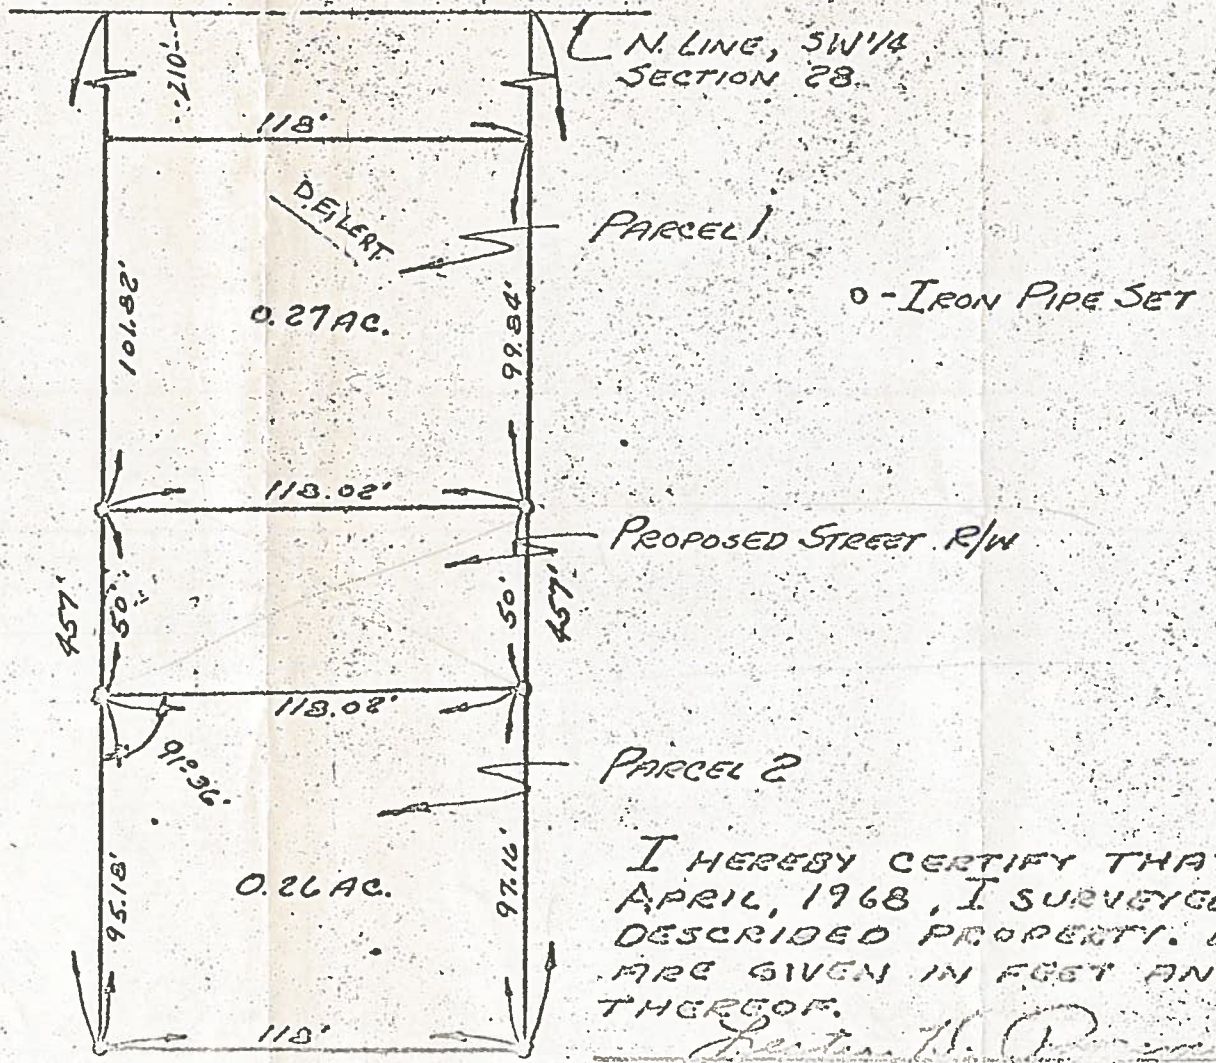 N. LINE, SW 1/4
SECTION 28.
210'
118'
D. EILERT
PARCEL 1
101.82'
0.27 AC.
99.84'
o - IRON PIPE SET
118.02'
PROPOSED STREET R/W
457'
50'
50'
457'
118.02'
91°36'
PARCEL 2
95.18'
0.26 AC.
97.16'
I HEREBY CERTIFY THAT
APRIL, 1968, I SURVEYE
DESCRIBED PROPERTY.
ARE GIVEN IN FEET AN
THEREOF.
118'